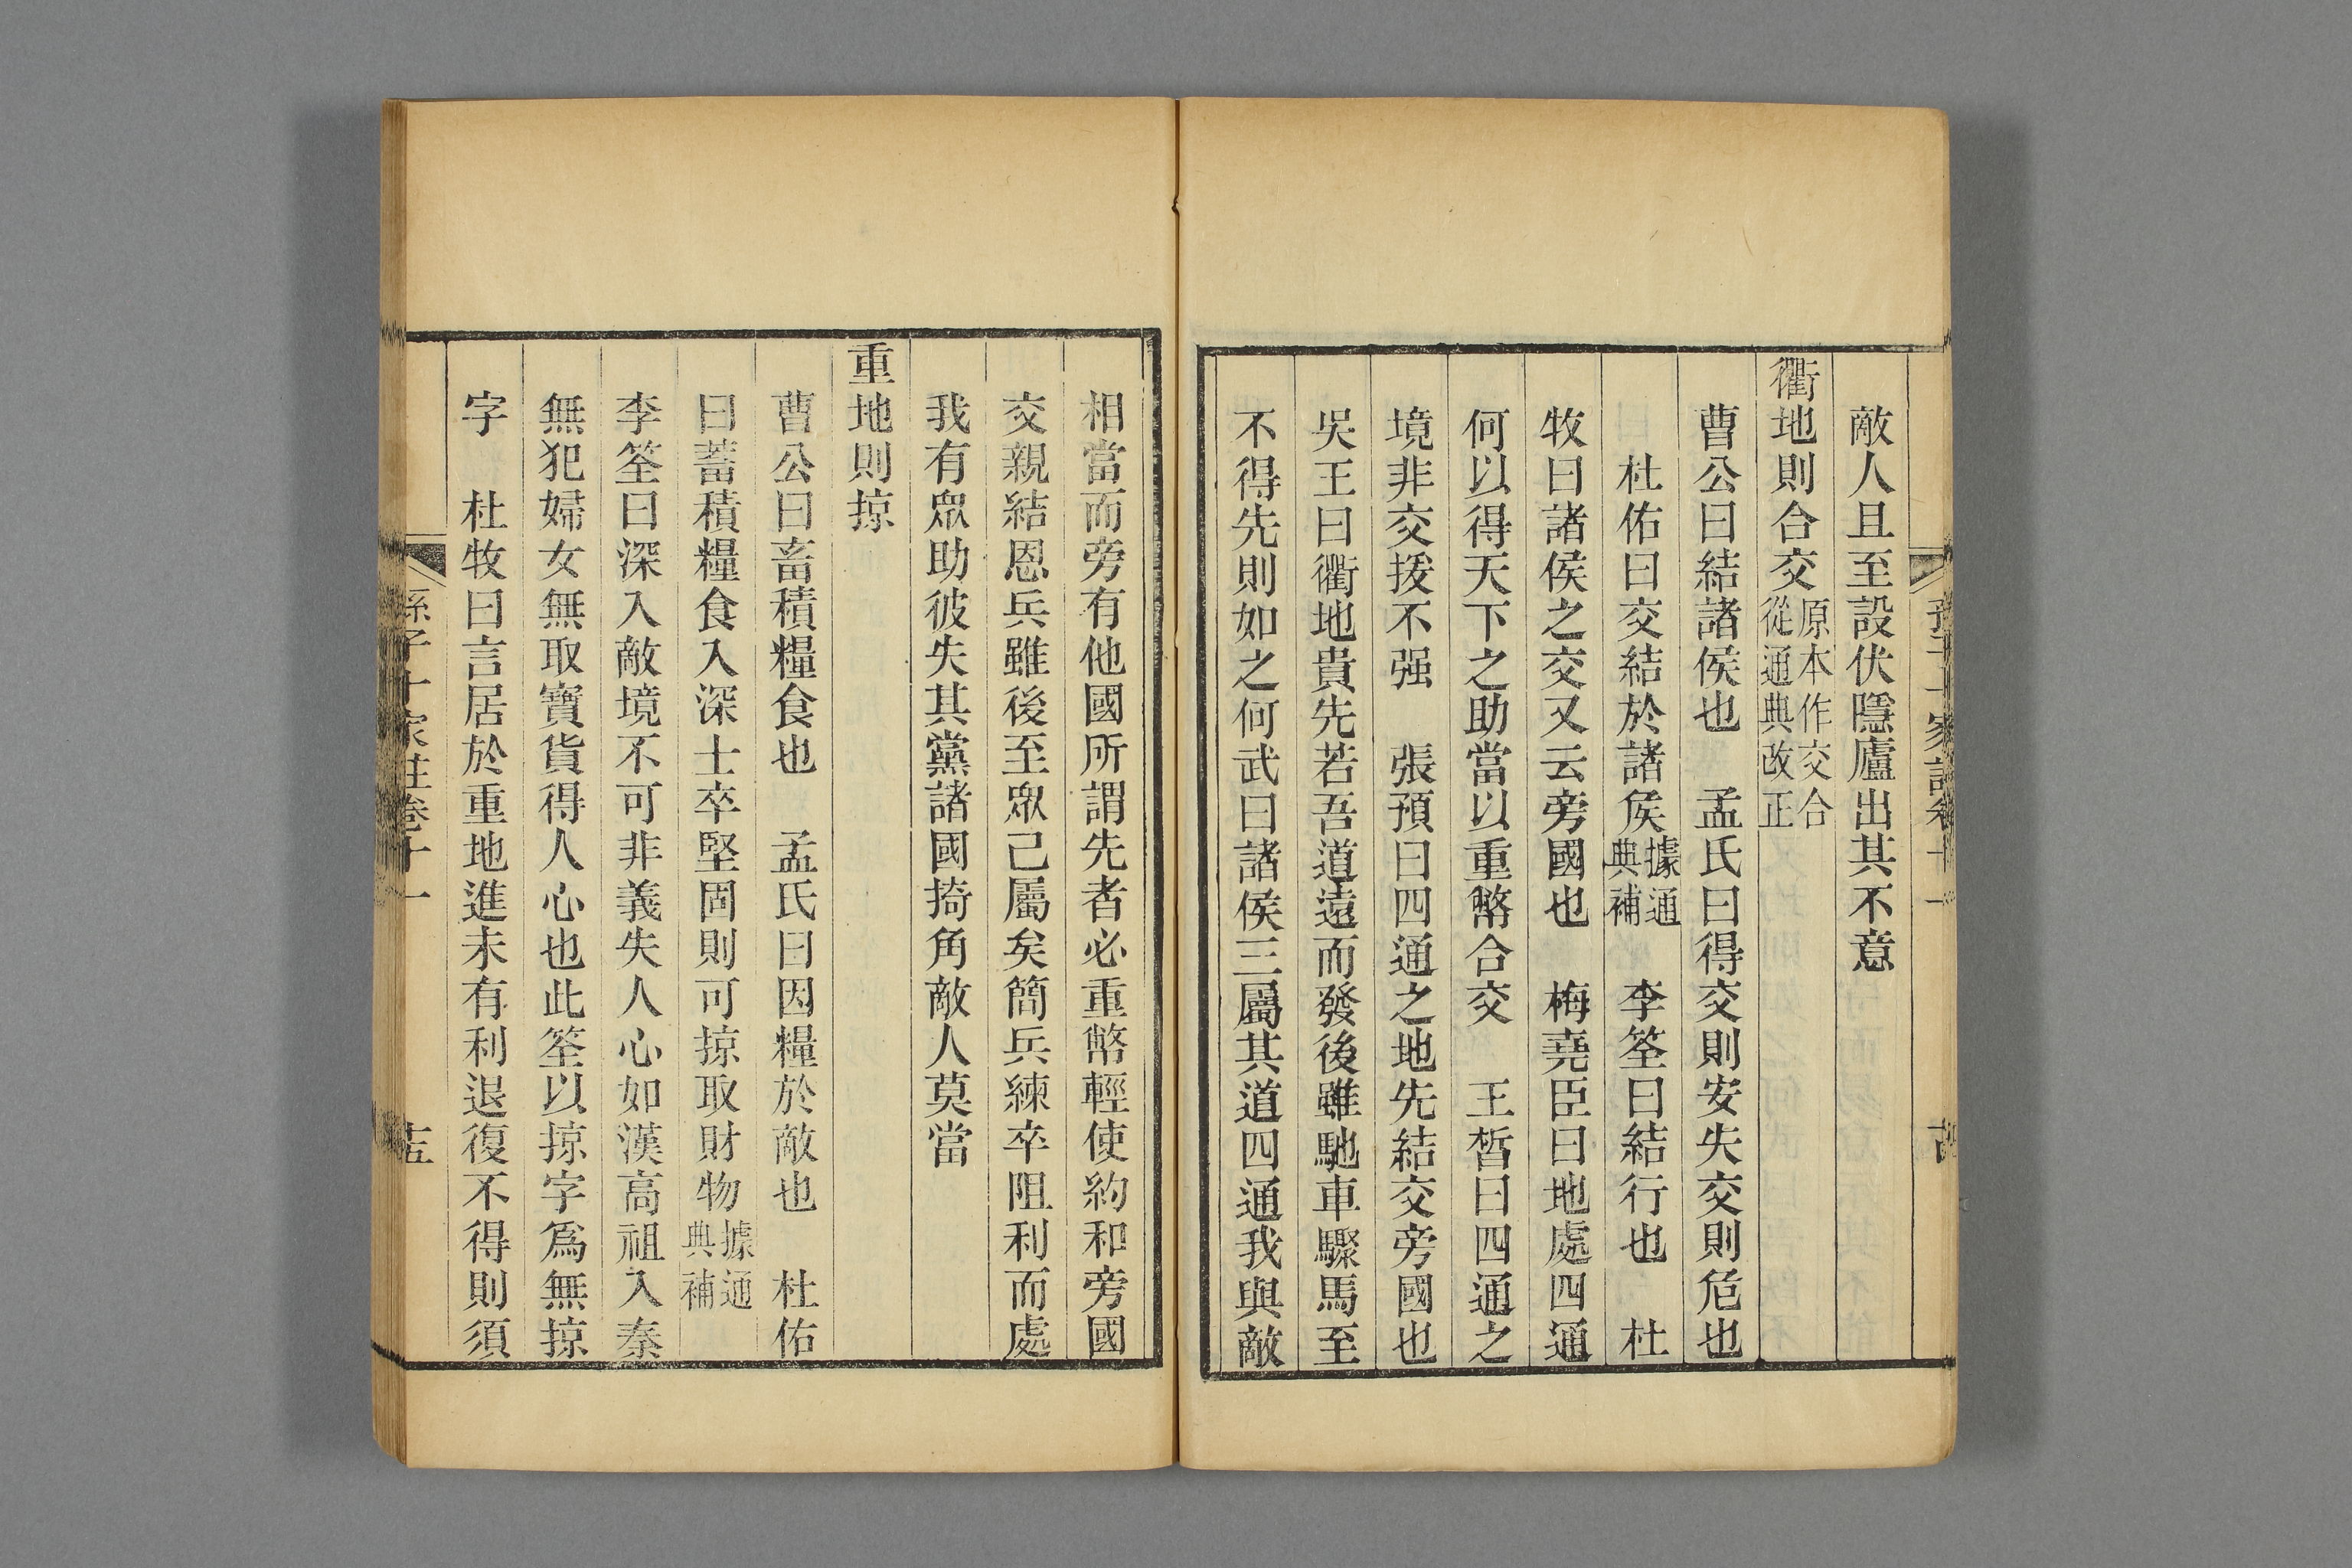 敵人且至設伏隱廬出其不意
衢地則合交原本作交合從通典改正
曹公曰結諸侯也　孟氏曰得交則安失交則危也
杜佑曰交結於諸侯據通典補　李筌曰結行也　杜
牧曰諸侯之交又云旁國也　梅堯臣曰地處四通
何以得天下之助當以重幣合交　王晳曰四通之
境非交援不强　張預曰四通之地先結交旁國也
吳王曰衢地貴先若吾道遠而發後雖馳車驟馬至
不得先則如之何武曰諸侯三屬其道四通我與敵
相當而旁有他國所謂先者必重幣輕使約和旁國
交親結恩兵雖後至眾己屬矣簡兵練卒阻利而處
我有眾助彼失其黨諸國掎角敵人莫當
重地則掠
曹公曰畜積糧食也　孟氏曰因糧於敵也　杜佑
曰蓄積糧食入深士卒堅固則可掠取財物據通典補
李筌曰深入敵境不可非義失人心如漢高祖入秦
無犯婦女無取寶貨得人心也此筌以掠字爲無掠
字　杜牧曰言居於重地進未有利退復不得則須
孫子十家註卷十一
十五